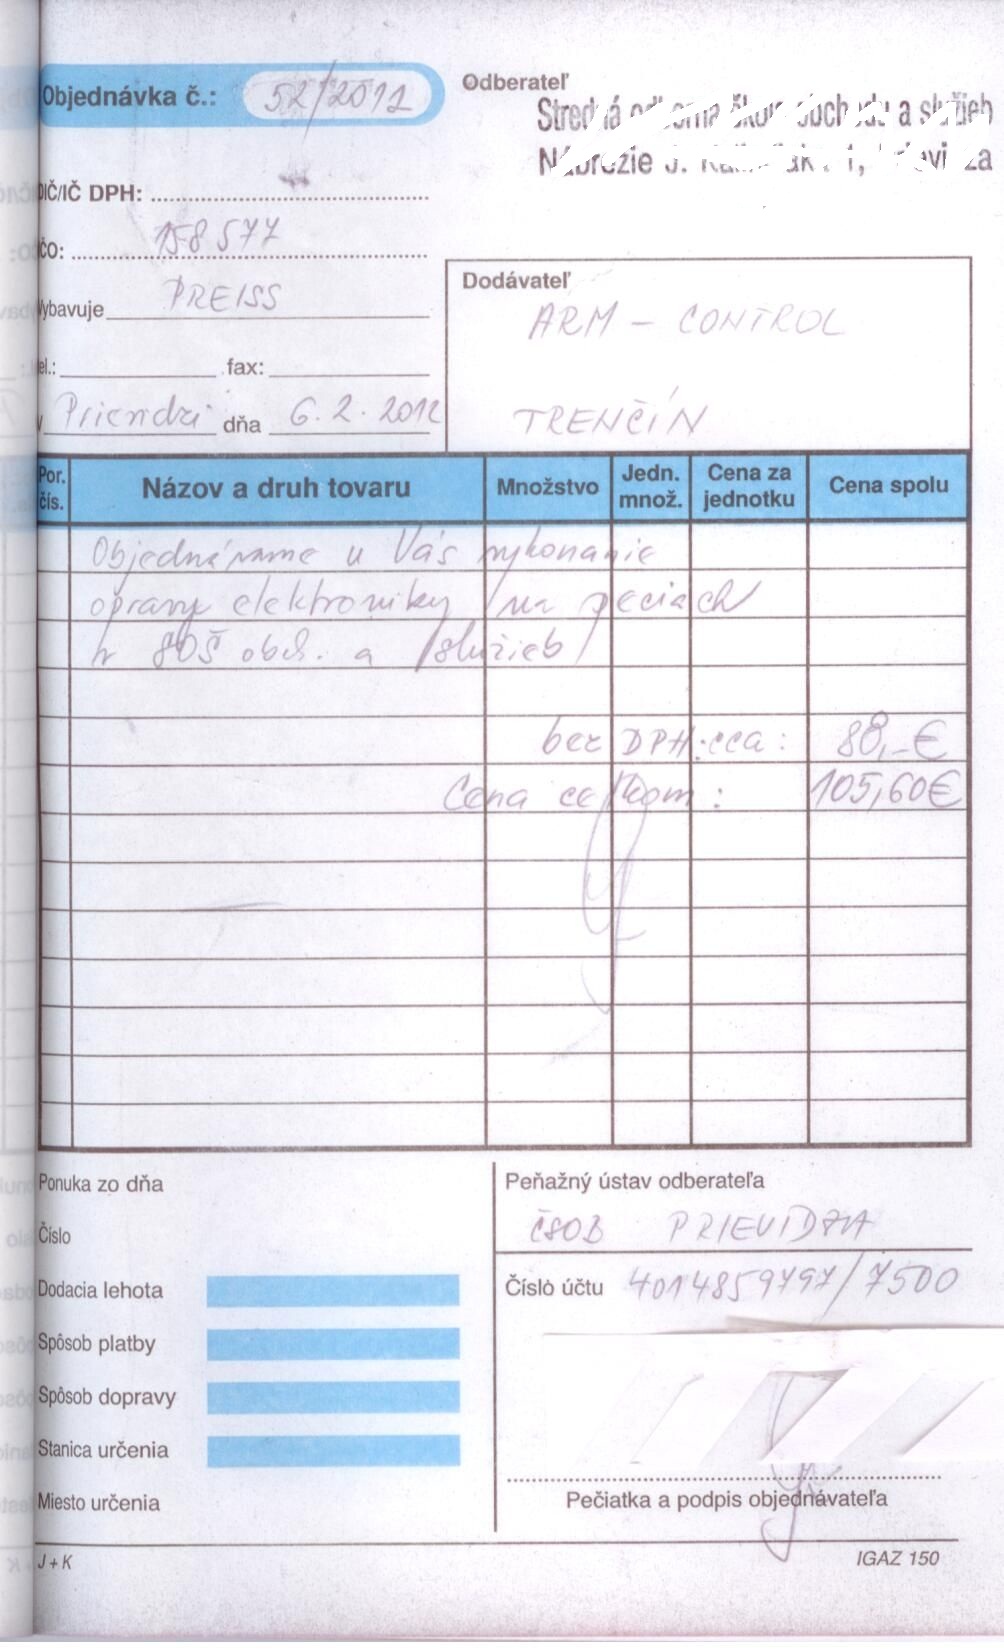 Objednávka č.: 52/2012
Odberateľ
Stredná odborná škola obchodu a služieb
Nábrežie J. 1, Prievidza
DIČ/IČ DPH:
IČO: 158 577
Vybavuje PREISS
Tel.: fax:
V Prievidzi dňa 6.2.2012
Dodávateľ
ARM - CONTROL
TRENČÍN
Por. čís. Názov a druh tovaru Množstvo Jedn. množ. Cena za jednotku Cena spolu
Objednávame u Vás vykonanie
opravy elektroniky na peciach
v SOŠ obch. a služieb
bez DPH cca: 88,-€
Cena celkom: 105,60€
Ponuka zo dňa
Číslo
Dodacia lehota
Spôsob platby
Spôsob dopravy
Stanica určenia
Miesto určenia
Peňažný ústav odberateľa
ČSOB PRIEVIDZA
Číslo účtu 4014859797/7500
Pečiatka a podpis objednávateľa
J + K
IGAZ 150